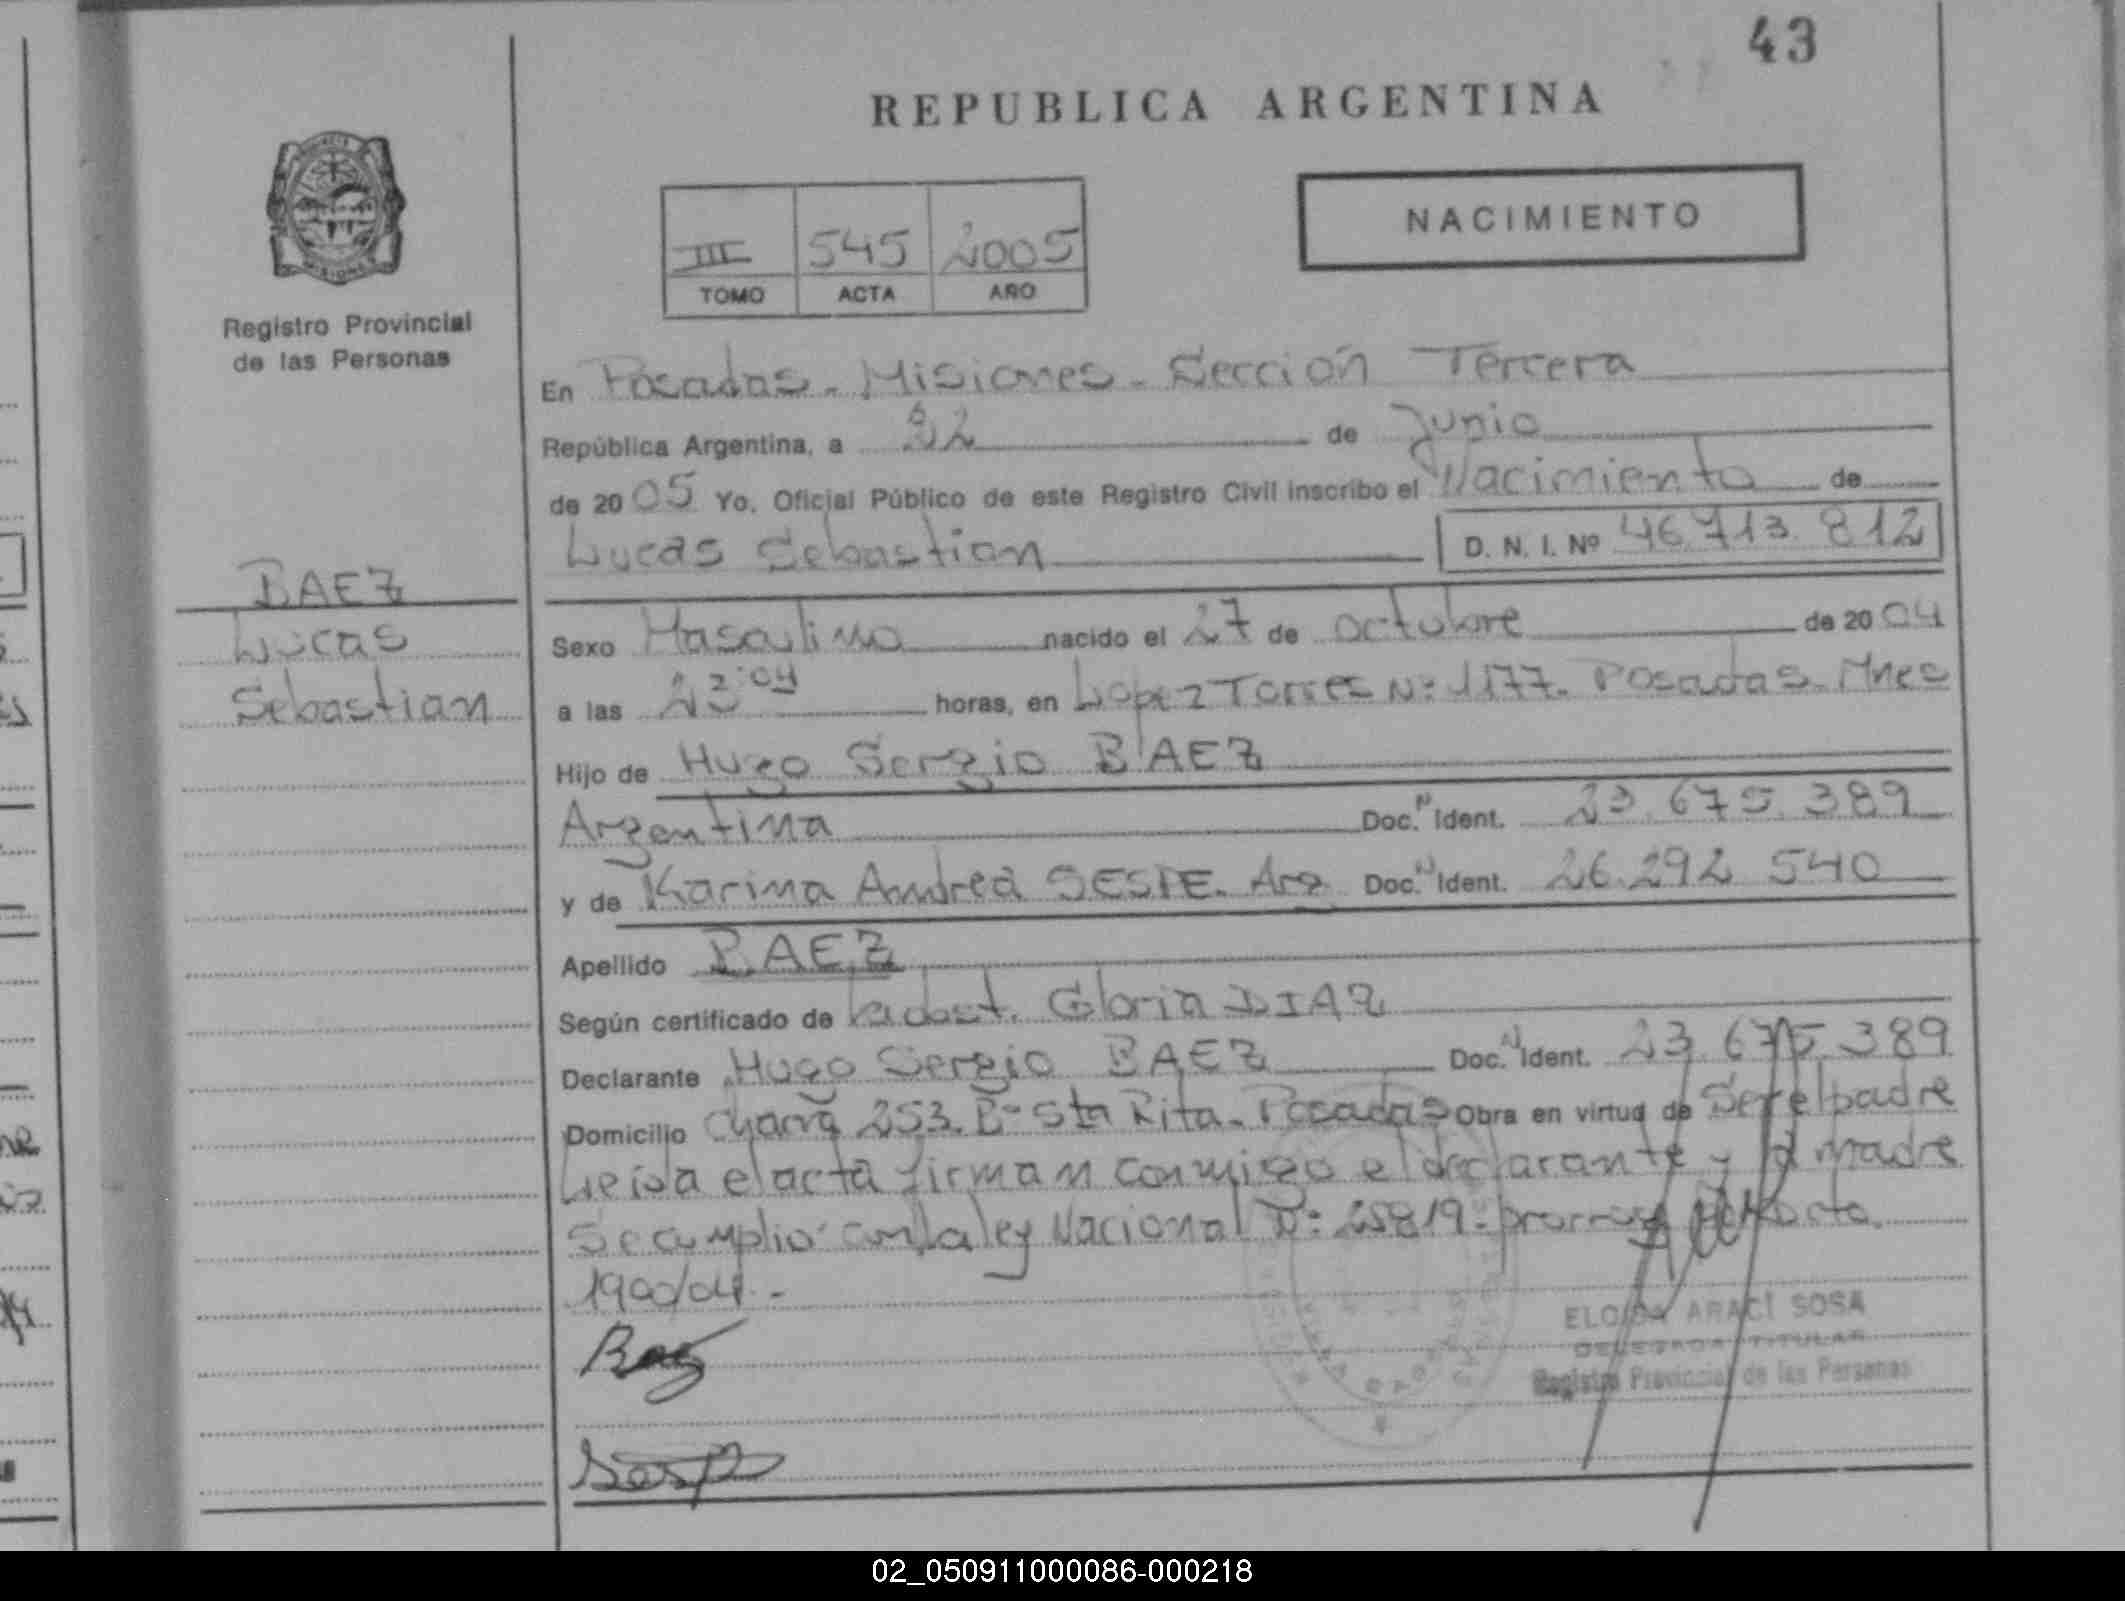 43
REPUBLICA ARGENTINA
III 545 2005
TOMO ACTA AÑO
NACIMIENTO
Registro Provincial
de las Personas
BAEZ
Lucas
Sebastian
En Posadas - Misiones - Sección Tercera
República Argentina, a de Junio
de 2005 Yo, Oficial Público de este Registro Civil inscribo el Nacimiento de
Lucas Sebastian D. N. I. Nº 46.713.812
Sexo Masculino nacido el 27 de octubre de 2004
a las 23:04 horas, en Lopez Torres Nº 1177. Posadas. Mnes
Hijo de Hugo Sergio BAEZ
Argentina Doc. N Ident. 23.675.389
y de Karina Andrea Arg Doc. N Ident. 26.292 540
Apellido BAEZ
Según certificado de Gloria DIAZ
Declarante Hugo Sergio BAEZ Doc. N Ident. 23.675.389
Domicilio 253. Bº Sta Rita - Posadas Obra en virtud de Ser el padre
Leida el acta firman conmigo el declarante y la madre
Se cumplio con la ley Nacional Nº: 25819.
1900/04.-
Baez
ELOISA ARACI SOSA
DELEGADA TITULAR
Registro Provincial de las Personas
02_050911000086-000218